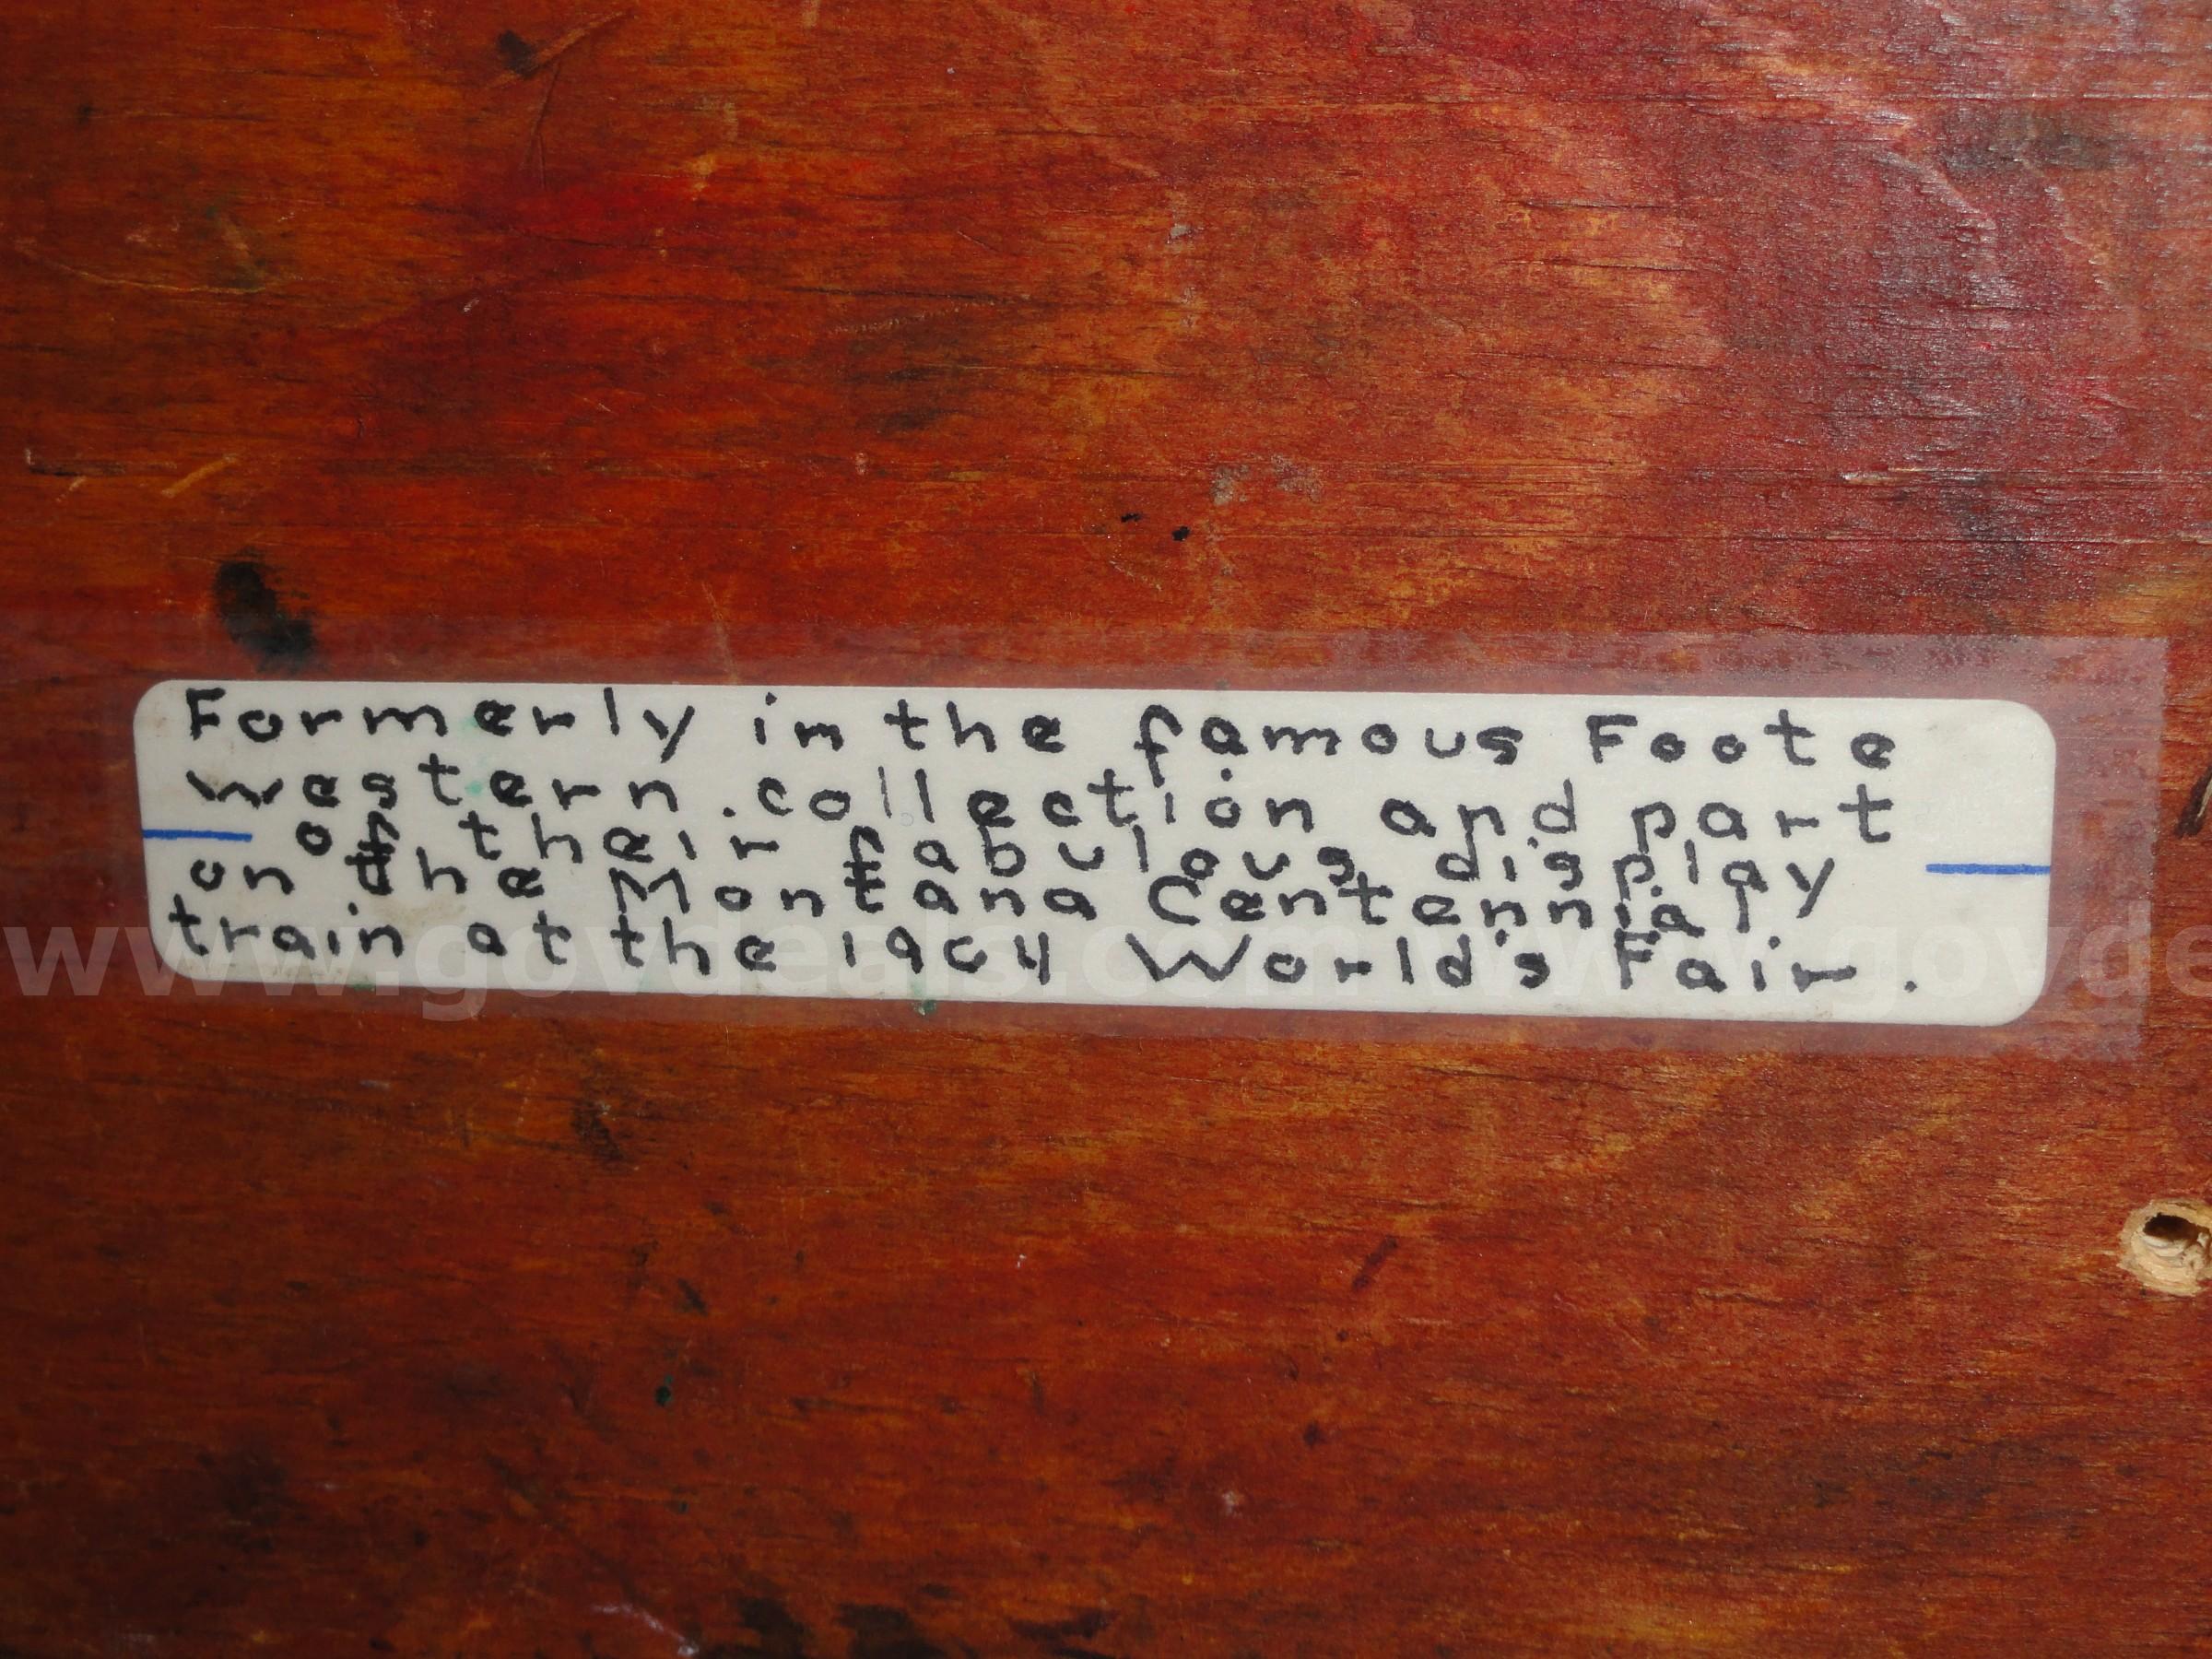 Formerly in the famous Foote
western collection and part
of their fabulous display
on the Montana Centennial
train at the 1964 World's Fair.
www.govdeals.com
www.govde